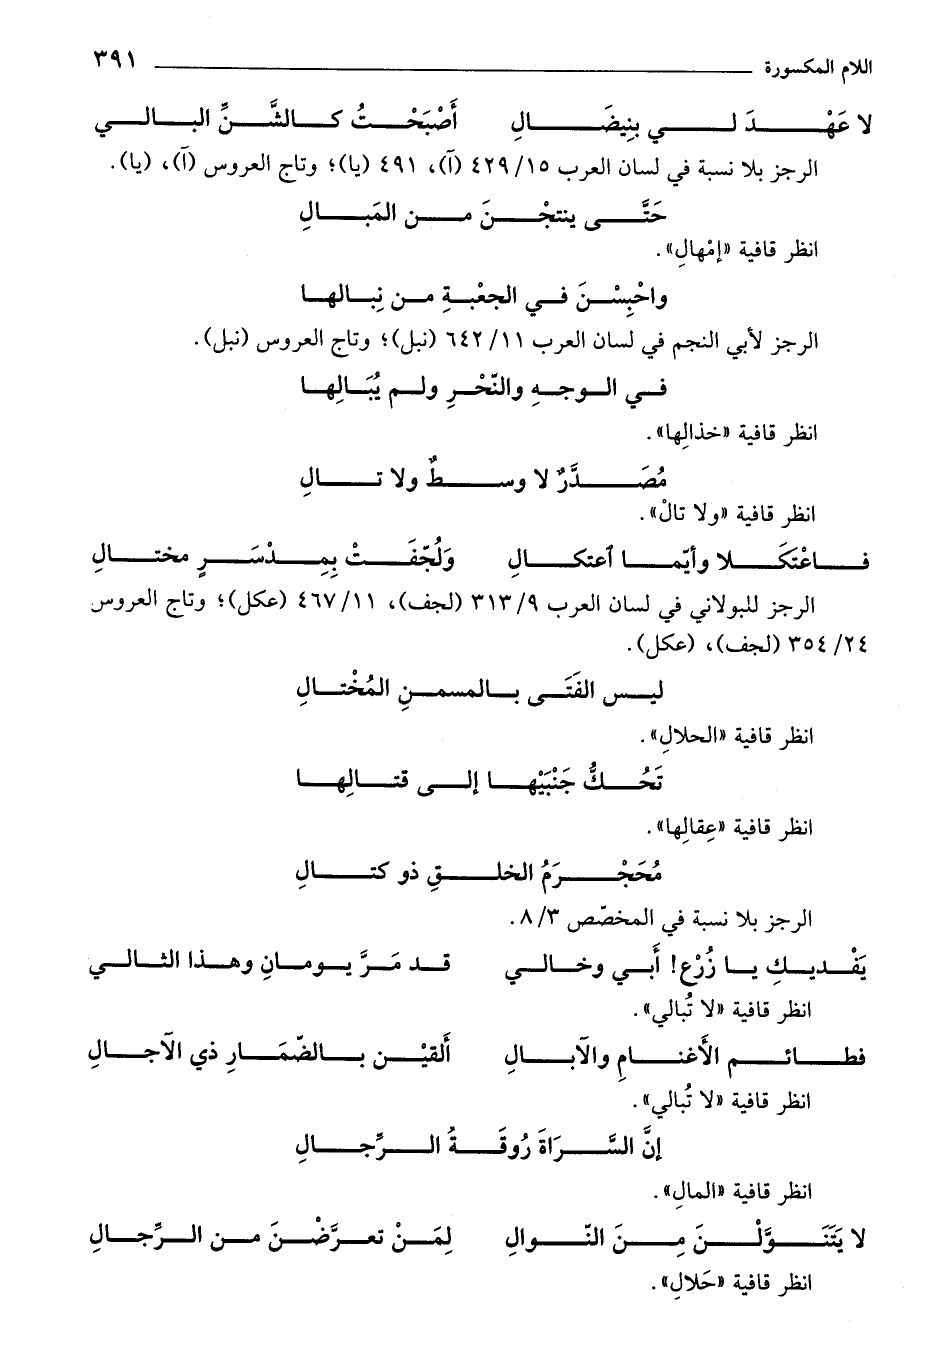 اللام المكسورة ٣٩١
لا عَهْدَ لي بِنِيضَالِ أَصْبَحْتُ كالشَّنِّ البالي
الرجز بلا نسبة في لسان العرب ٤٢٩/١٥ (آ)، ٤٩١ (يا)؛ وتاج العروس (آ)، (يا).
حَتَّى ينتجْنَ من المَبالِ
انظر قافية «إمْهالِ».
واحْبِسْنَ في الجعْبةِ من نِبالها
الرجز لأبي النجم في لسان العرب ٦٤٢/١١ (نبل)؛ وتاج العروس (نبل).
في الوجهِ والنّحْرِ ولم يُبَالِها
انظر قافية «خذالِها».
مُصَدَّرٌ لا وسطٌ ولا تالِ
انظر قافية «ولا تالْ».
فاعْتَكَلا وأيّما اعتكالِ وَلُجّفَتْ بِمِدْسَرٍ مختالِ
الرجز للبولاني في لسان العرب ٣١٣/٩ (لجف)، ٤٦٧/١١ (عكل)؛ وتاج العروس
٣٥٤/٢٤ (لجف)، (عكل).
ليس الفَتَى بالمسمنِ المُخْتالِ
انظر قافية «الحلالِ».
تَحُكُّ جَنْبَيْها إلى قتالِها
انظر قافية «عِقالِها».
مُحَجْرَمُ الخلقِ ذو كتالِ
الرجز بلا نسبة في المخصّص ٨/٣.
يَفْديكِ يا زُرْع! أَبي وخالي قد مَرَّ يومانِ وهذا الثالي
انظر قافية «لا تُبالي».
فطائم الأَغنامِ والآبالِ أَلقيْن بالضّمَارِ ذي الآجالِ
انظر قافية «لا تُبالي».
إنَّ السَّرَاةَ رُوقَةُ الرِّجالِ
انظر قافية «المالِ».
لا يَتَنَوَّلْنَ مِنَ النّوالِ لِمَنْ تعرَّضْنَ من الرِّجالِ
انظر قافية «حَلالِ».